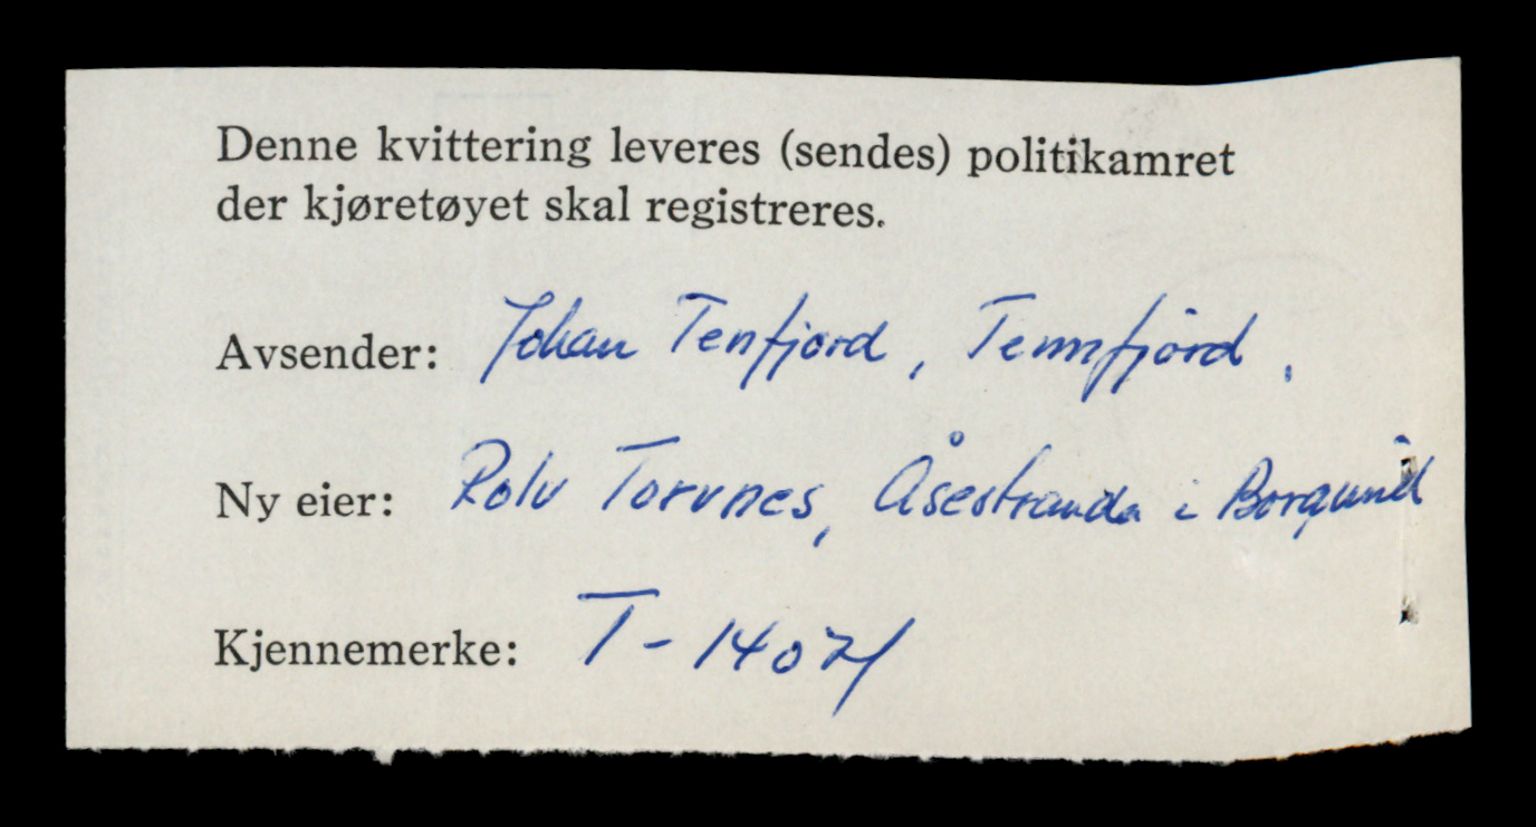 Denne kvittering leveres (sendes) politikamret
der kjøretøyet skal registreres.
Avsender: Johan Tenfjord, Tennfjord.
Ny eier: Rolv Torvnes, Åsestranda i Borgund
Kjennemerke: T-14071